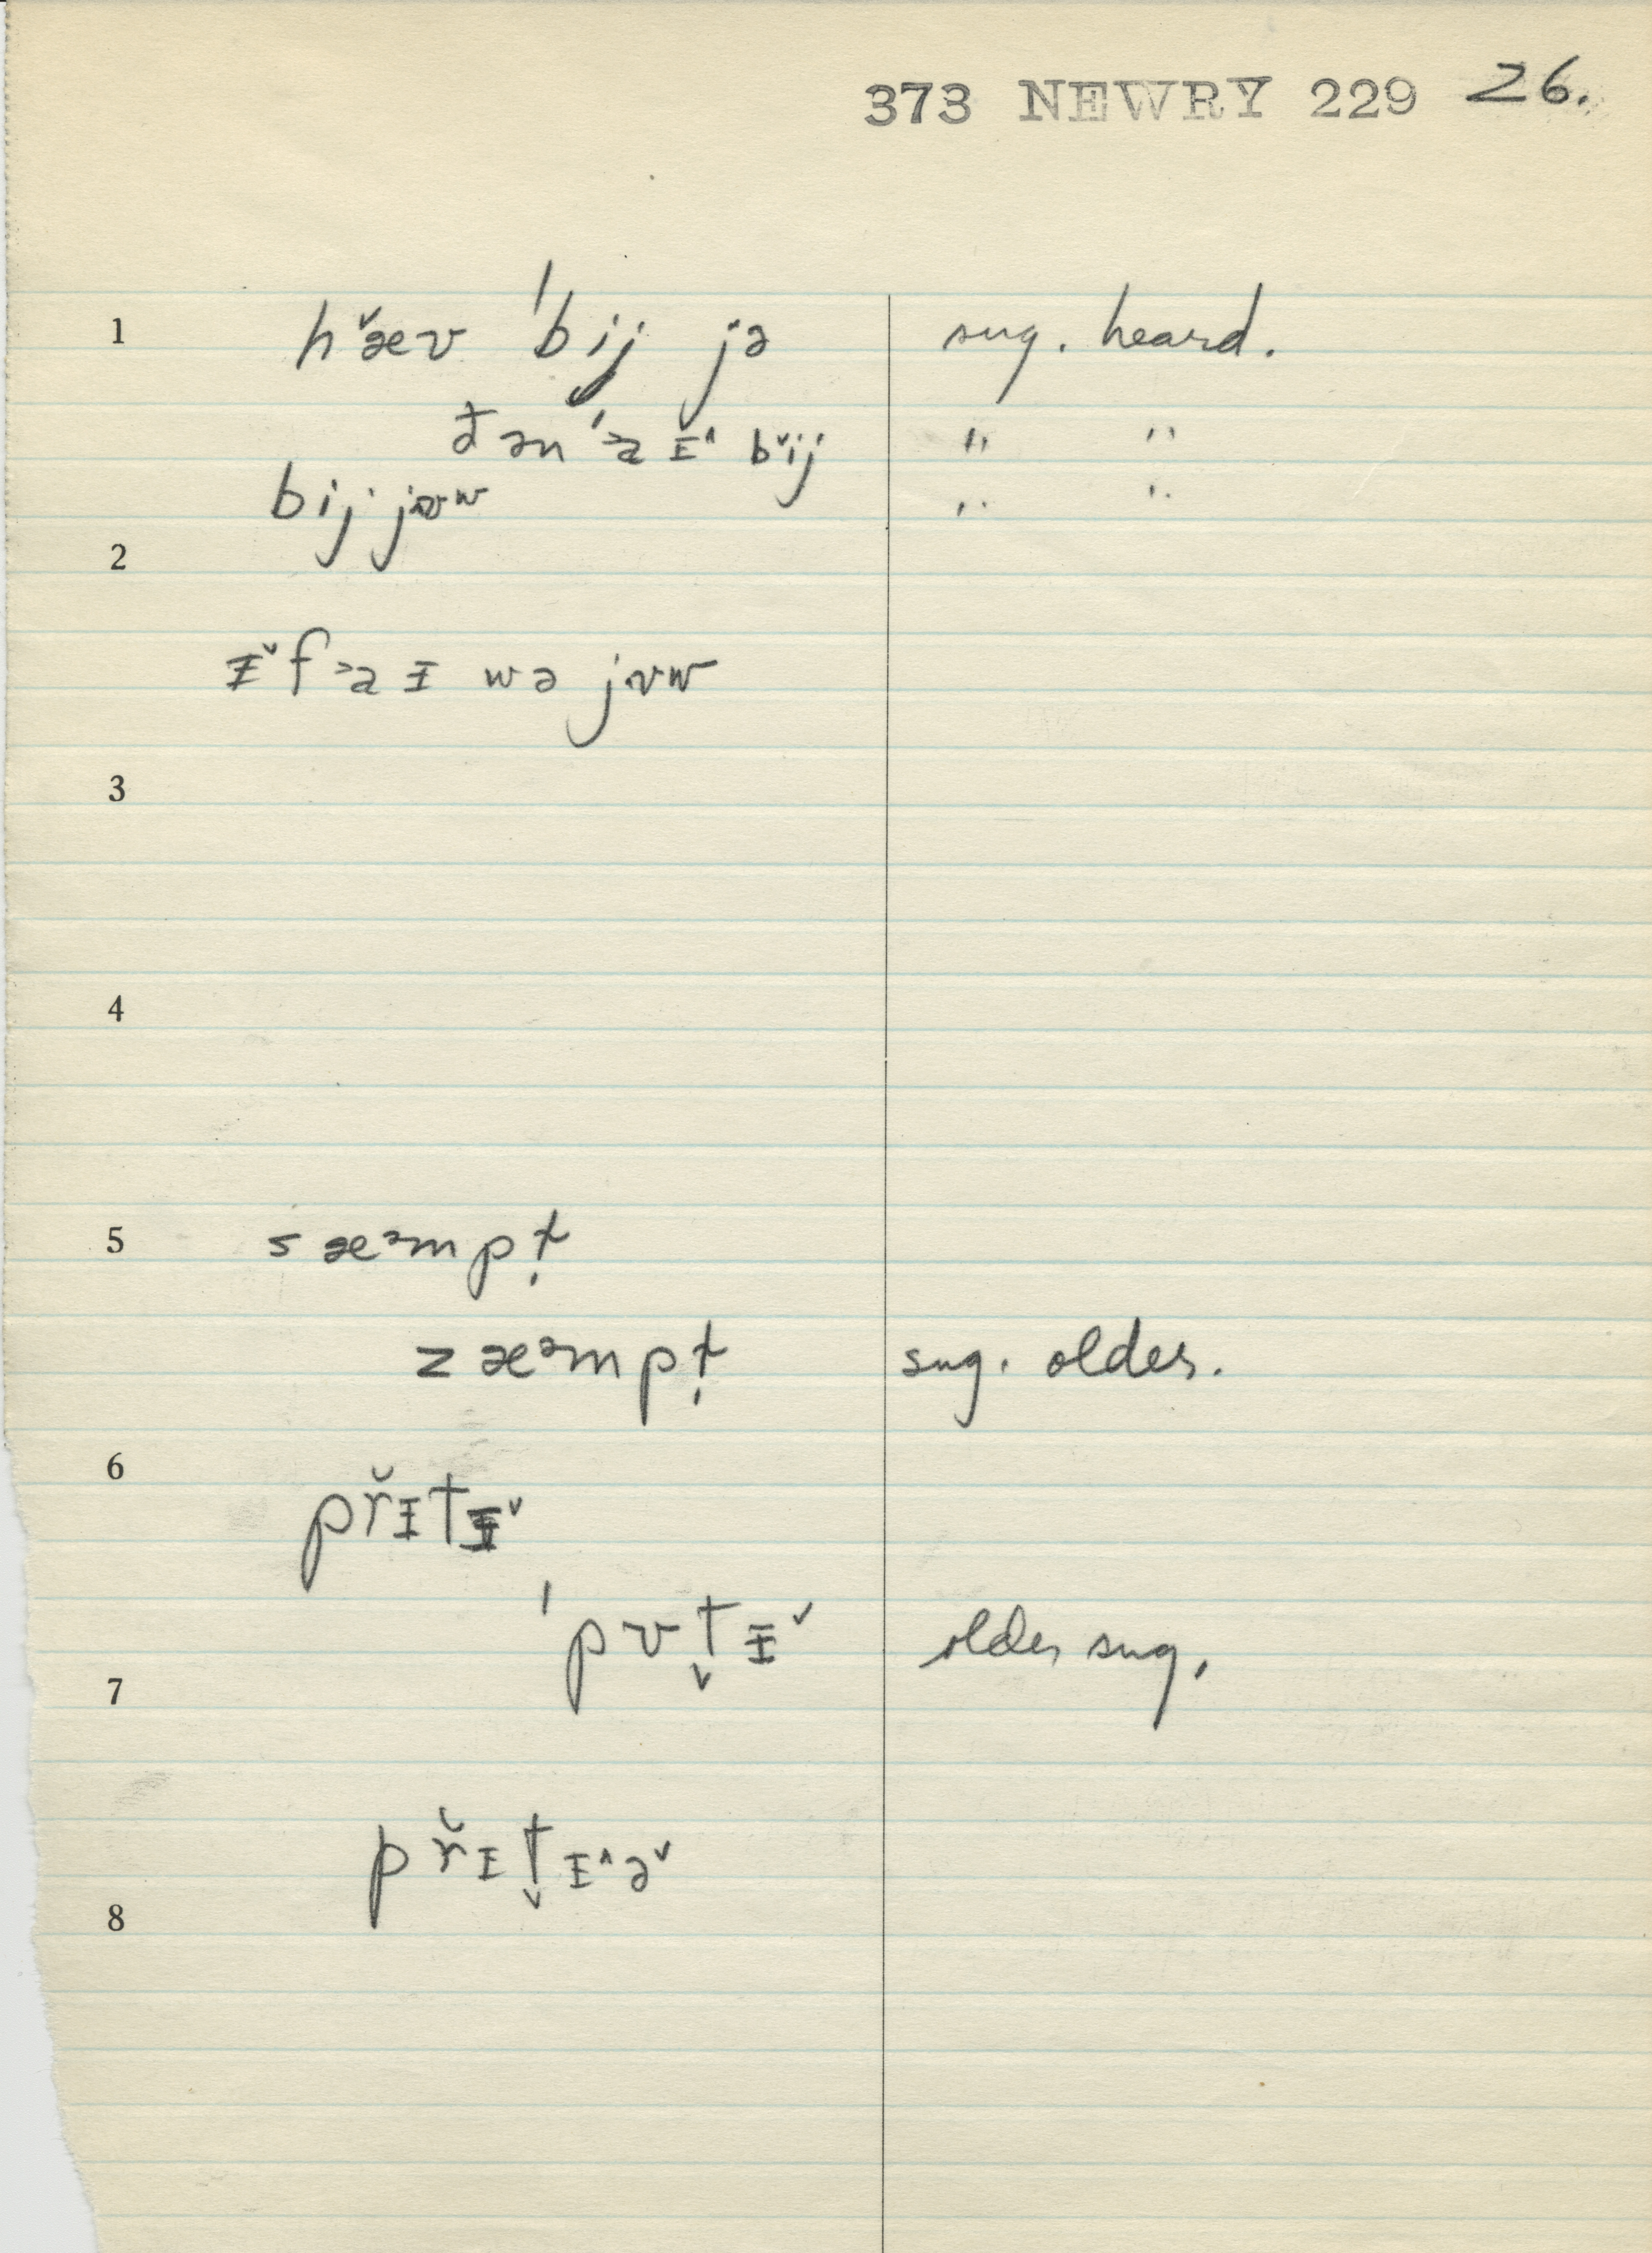 373 NEWRY 229 26.
1 hæ̌v ˈbij jə sug. heard.
đən ˈ˃aɪ^ bˇij " "
bij jʊw " "
2
ɪˇf ˃aɪ wə jʊw
3
4
5 sæᵊmpt̨
zæᵊmpt̨ sug. older.
6 př̆ɪtɪˇ
ˈpʊt̬ɪˇ older sug.
7
př̆ɪt̬ɪ^əˇ
8